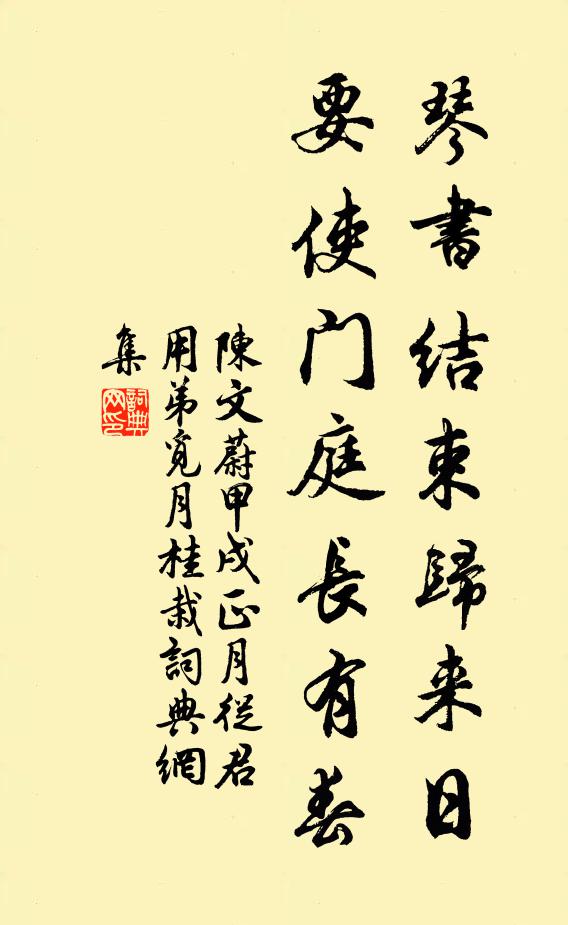 琴書結束歸来日
要使門庭長有春
陳文蔚甲戌正月從君
用弟覓月桂栽詞典網
集
詞典網印